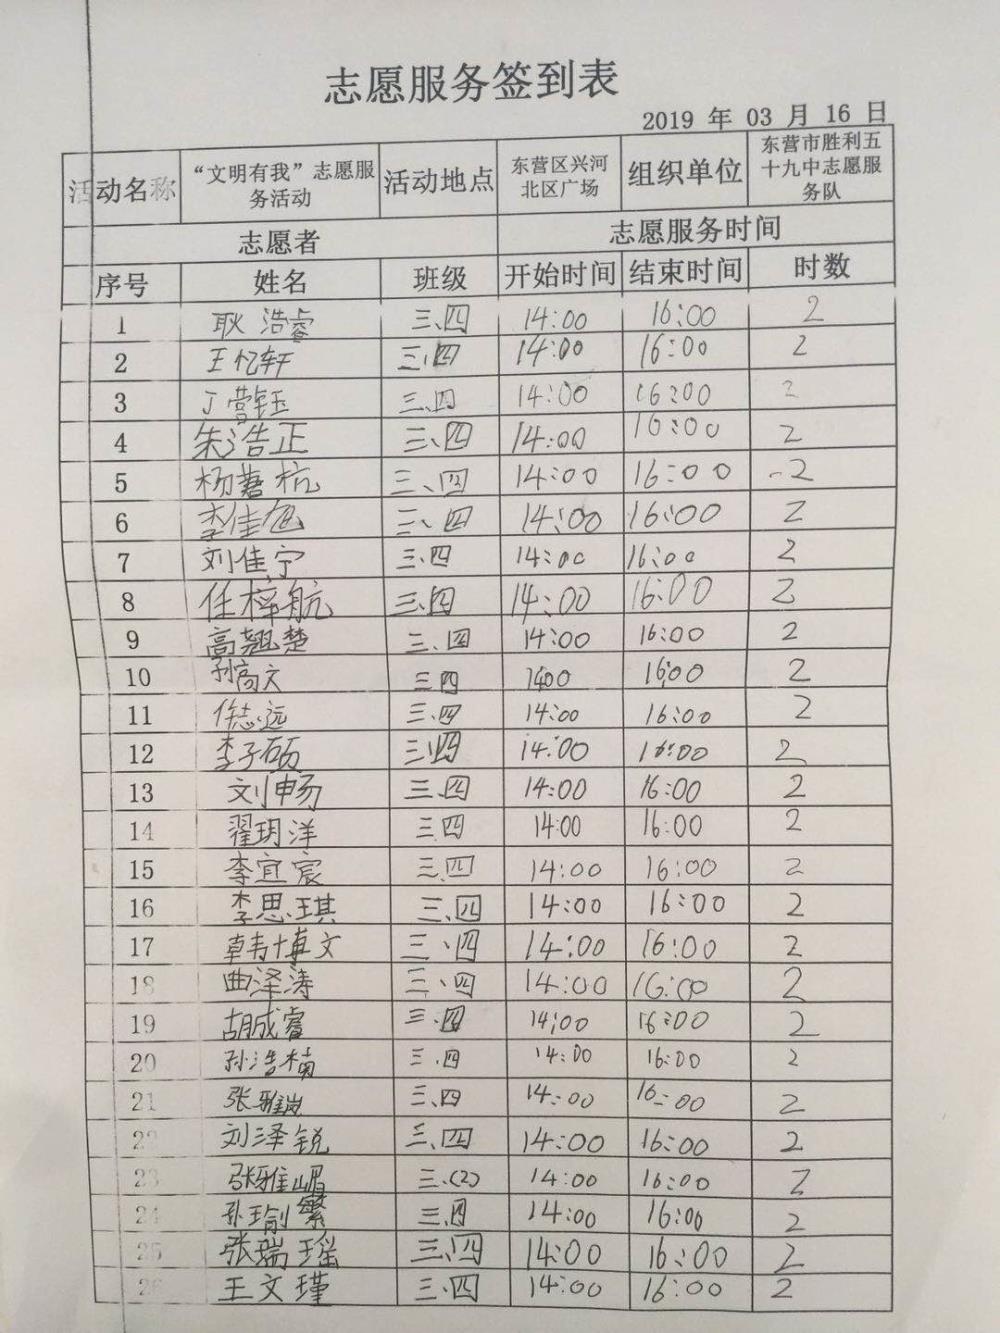 志愿服务签到表
2019 年 03 月 16 日
活动名称 “文明有我”志愿服务活动 活动地点 东营区兴河北区广场 组织单位 东营市胜利五十九中志愿服务队
志愿者 志愿服务时间
序号 姓名 班级 开始时间 结束时间 时数
1 耿浩睿 三.四 14:00 16:00 2
2 王忆轩 三.四 14:00 16:00 2
3 丁营钰 三.四 14:00 16:00 2
4 朱浩正 三、四 14:00 16:00 2
5 杨嘉杭 三、四 14:00 16:00 2
6 李佳旭 三、四 14:00 16:00 2
7 刘佳宁 三.四 14:00 16:00 2
8 任梓航 三.四 14:00 16:00 2
9 高翘楚 三、四 14:00 16:00 2
10 孙高文 三四 1400 16:00 2
11 徐志远 三.四 14:00 16:00 2
12 李子砺 三.四 14:00 16:00 2
13 刘畅 三.四 14:00 16:00 2
14 翟玥洋 三四 14:00 16:00 2
15 李宜宸 三.四 14:00 16:00 2
16 李思琪 三.四 14:00 16:00 2
17 韩博文 三、四 14:00 16:00 2
18 曲泽涛 三、四 14:00 16:00 2
19 胡成睿 三.四 14:00 16:00 2
20 孙浩楠 三.四 14:00 16:00 2
21 张雅岚 三.四 14:00 16:00 2
22 刘泽锐 三、四 14:00 16:00 2
23 张雅嵋 三.(2) 14:00 16:00 2
24 孙瑜繁 三.四 14:00 16:00 2
25 张瑞瑶 三、四 14:00 16:00 2
26 王文瑾 三.四 14:00 16:00 2